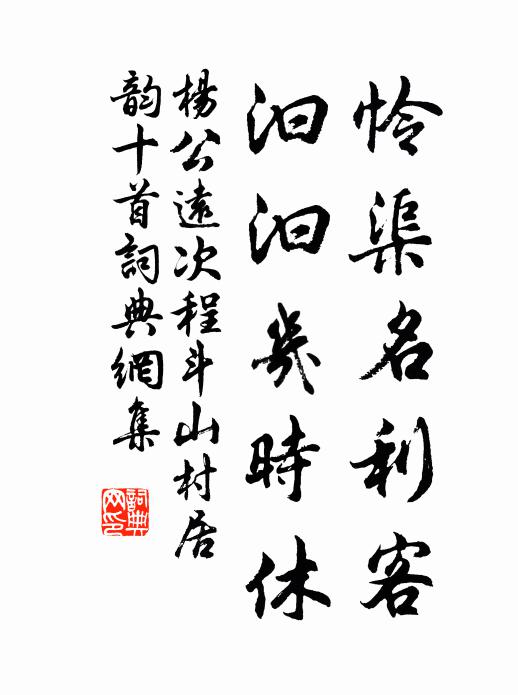 怜渠名利客
汩汩幾時休
楊公遠次程斗山村居
韵十首詞典網集
詞典
网印